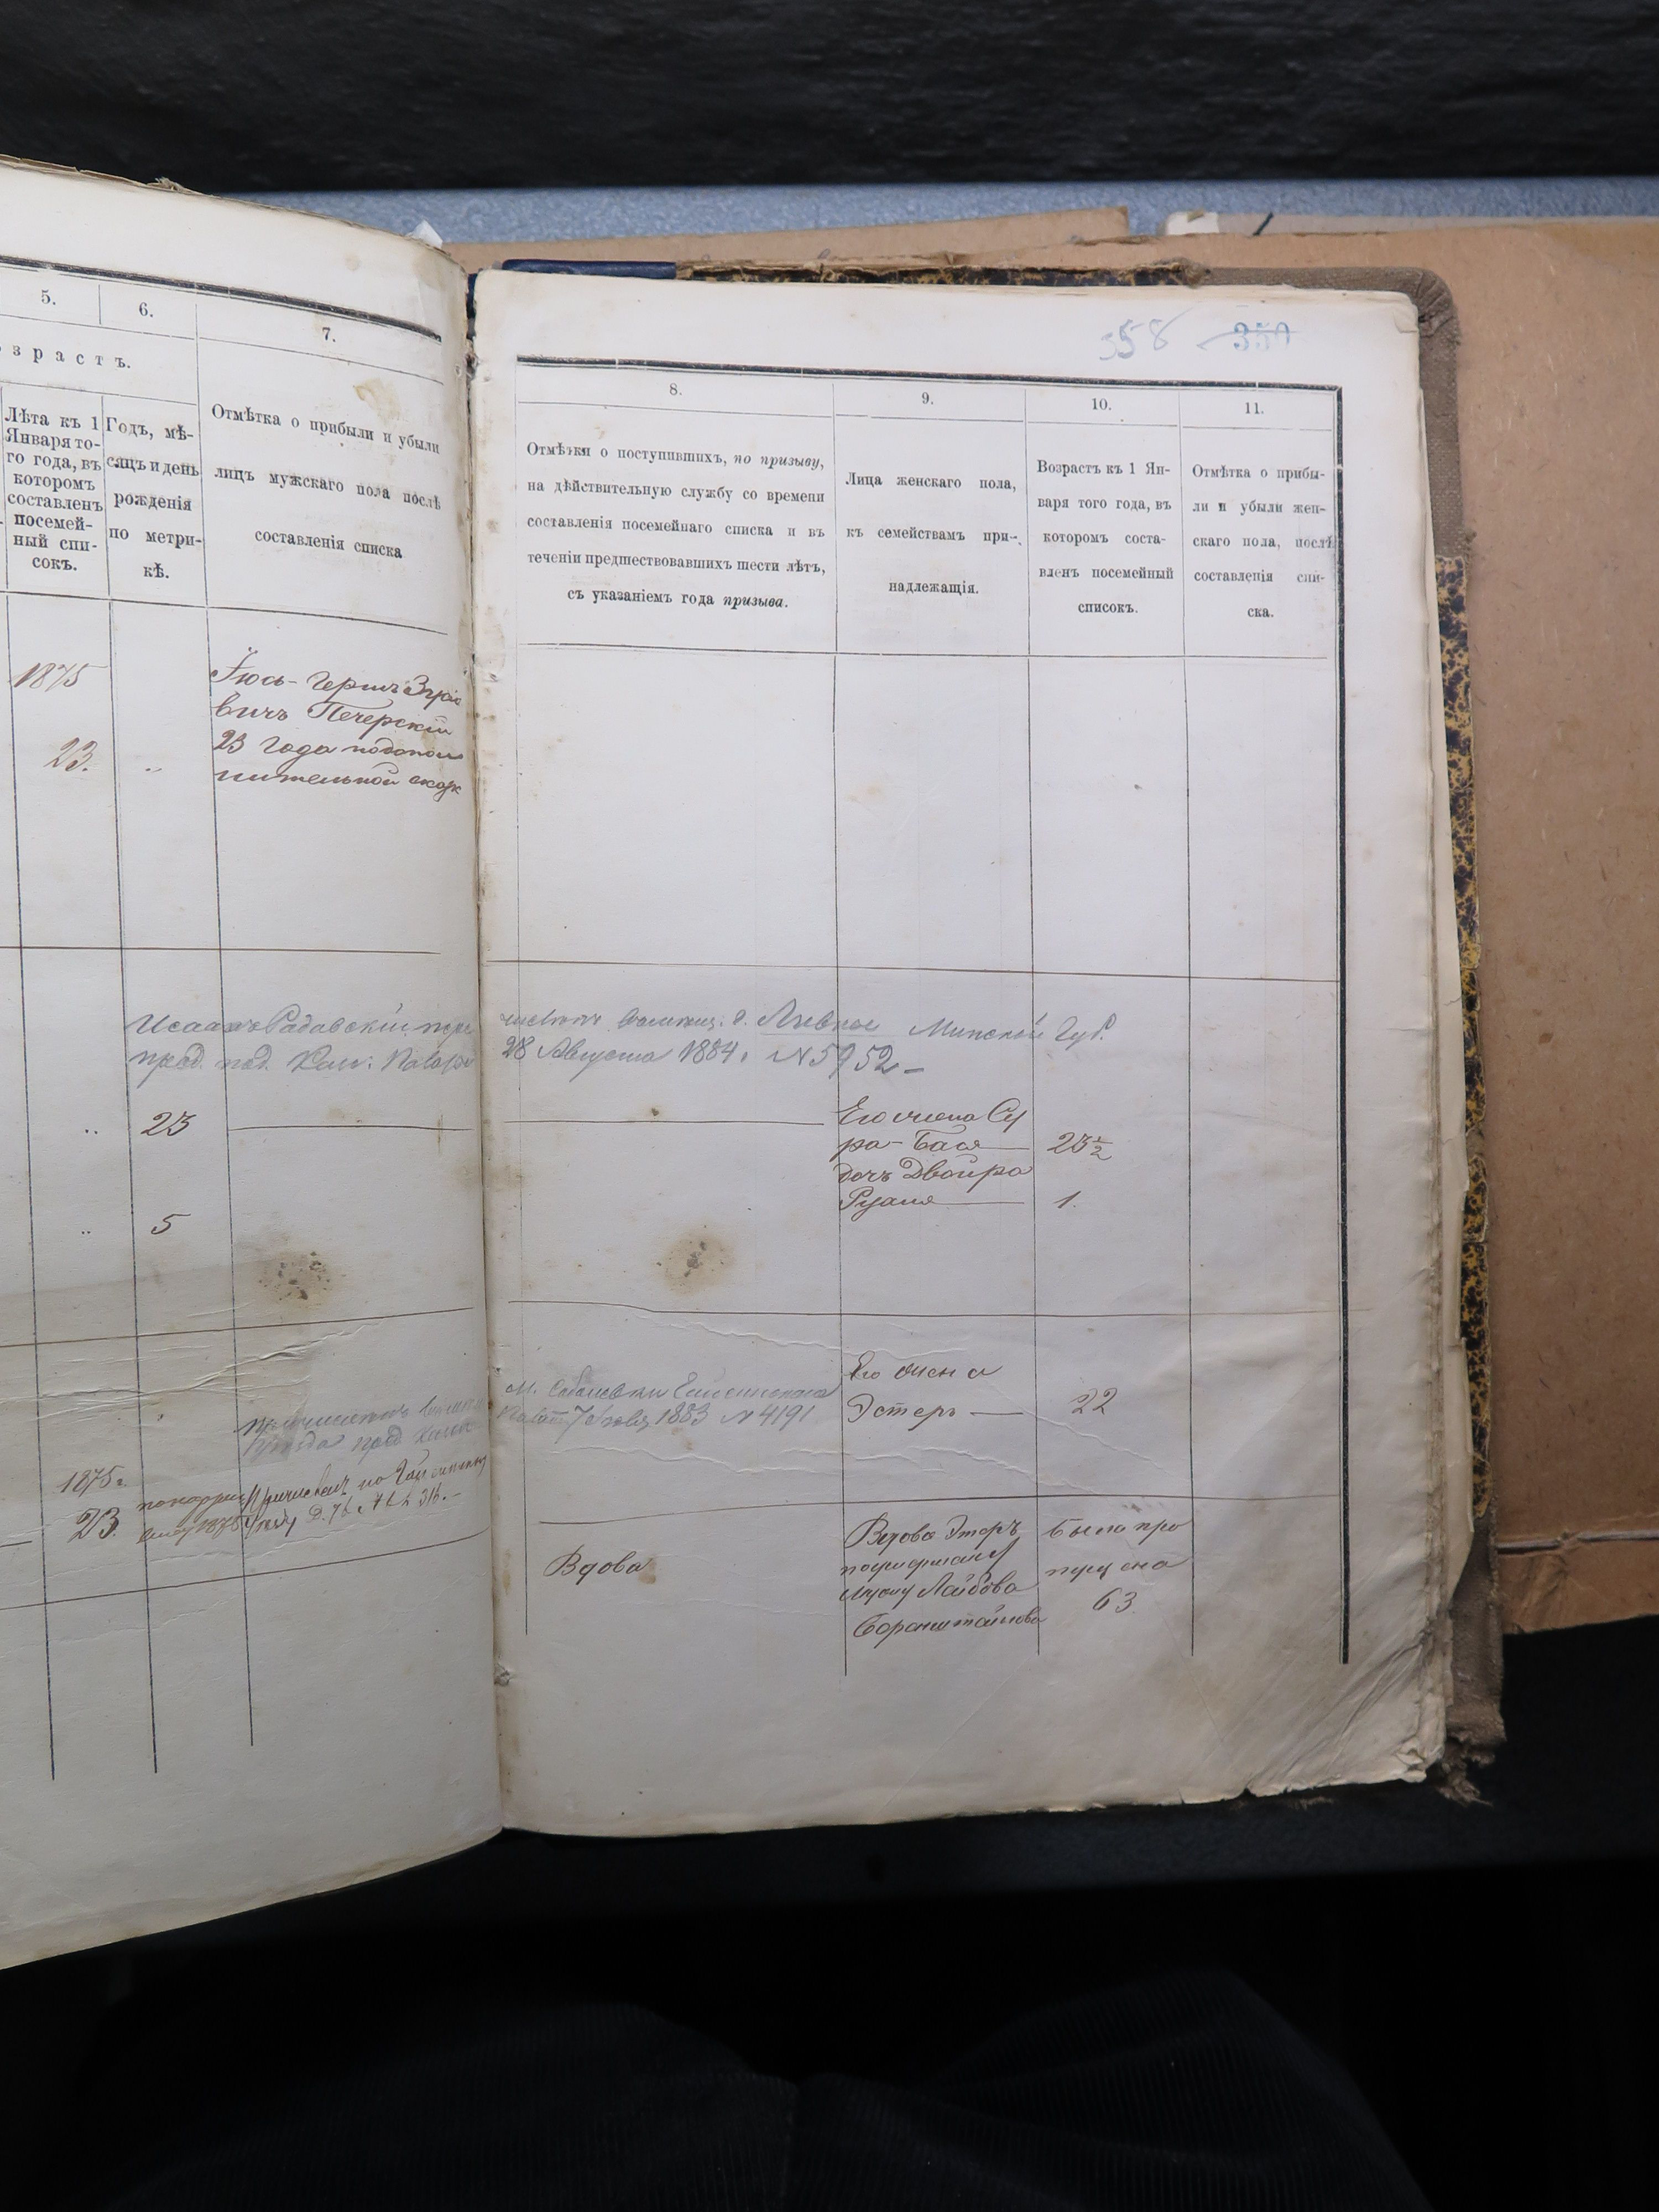 5.
6.
7.
озрастъ.
Лѣта къ 1
Января то-
го года, въ
которомъ
составленъ
посемей-
ный спи-
сокъ.
Годъ, мѣ-
сяцъ и день
рожденія
по метри-
кѣ.
Отмѣтка о прибыли и убыли
лицъ мужскаго пола послѣ
составленія списка
1875
23.
"
Іось-Гершъ
вичъ Печерскій
23 года подопол
нительной сказк
Исаакъ Радавскій
пред. под. Каз: Палаты
23
5
1875 г.
23.
358 350
8.
9.
10.
11.
Отмѣтки о поступившихъ, по призыву,
на дѣйствительную службу со времени
составленія посемейнаго списка и въ
теченіи предшествовавшихъ шести лѣтъ,
съ указаніемъ года призыва.
Лица женскаго пола,
къ семействамъ при-
надлежащія.
Возрастъ къ 1 Ян-
варя того года, въ
которомъ соста-
вленъ посемейный
списокъ.
Отмѣтка о прибы-
ли и убыли жен-
скаго пола, послѣ
составленія спи-
ска.
Минской Губ.
28 Августа 1884 г. №5952
Его жена Су
ра-Бася 23½
дочь Двойра
Рузля 1.
Его жена
Эстеръ 22
1883 №4191
Вдова
Вдова Этеръ
Лайбова
Боранштейнова
Была про
пущена
63.